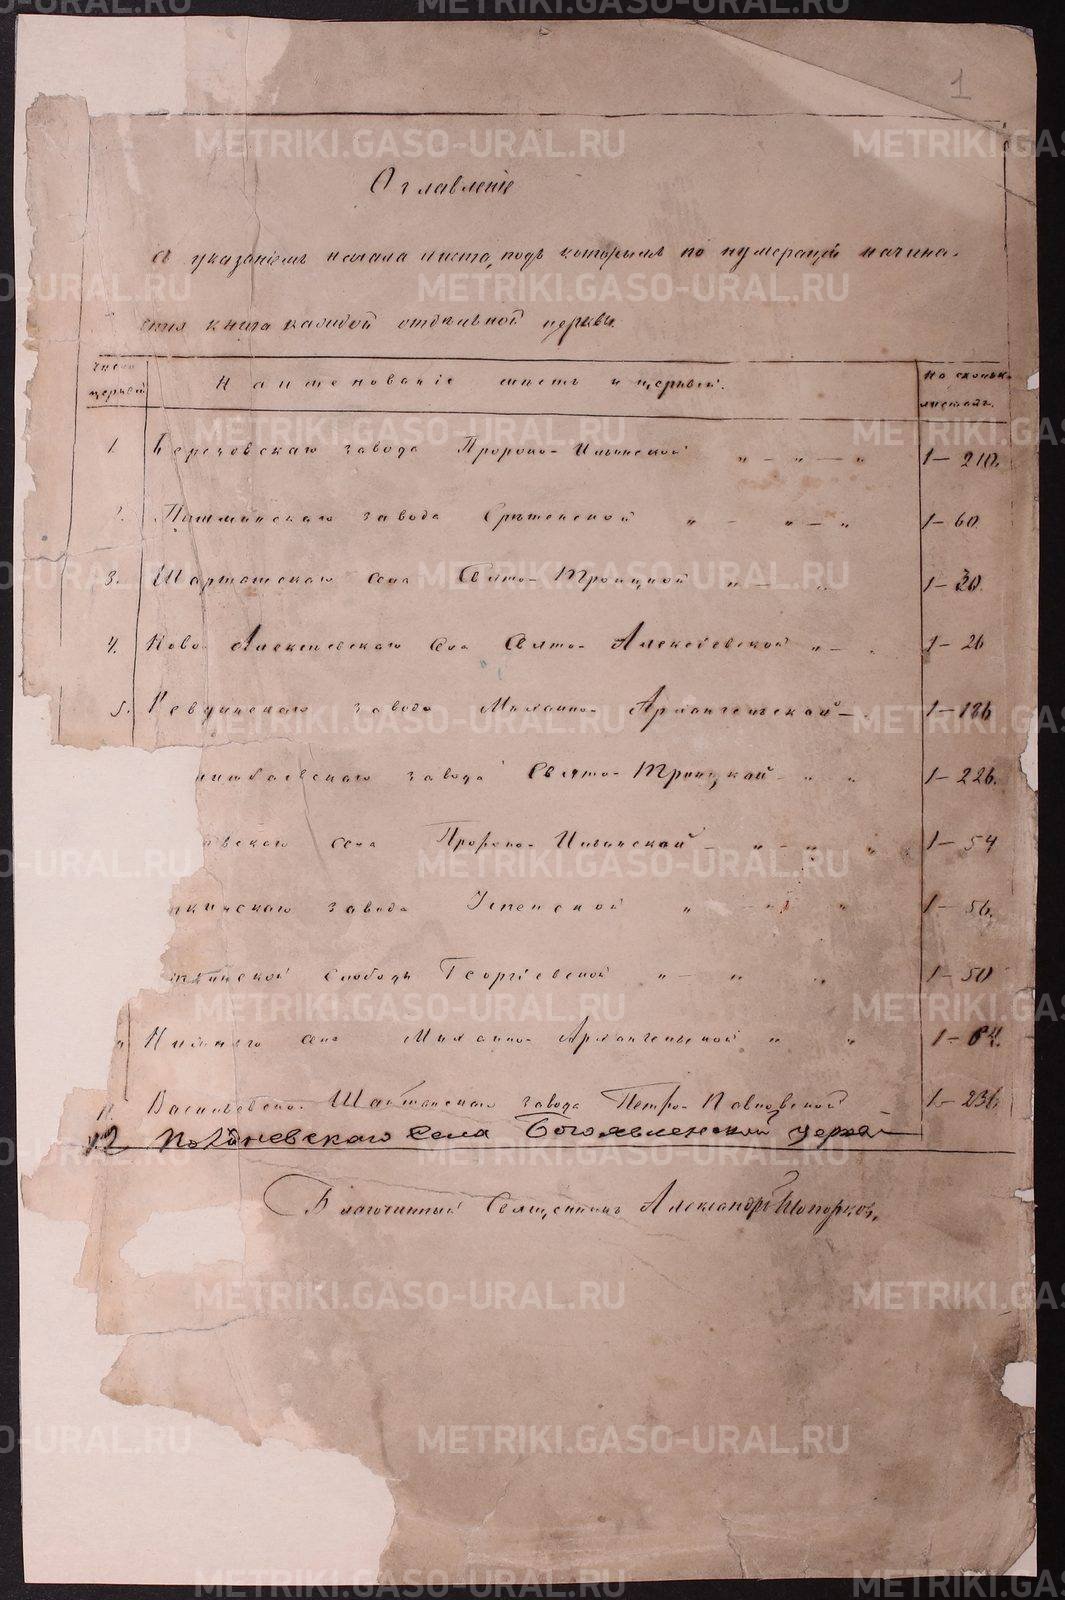 1
Оглавленіе
съ указаніемъ начала листа, подъ которымъ по нумераціи начина-
ется книга каждой отдѣльной церкви.
Число церквей
Наименованіе мѣстъ и церквей.
На сколькихъ листахъ.
1. Березовскаго завода Пророко-Ильинской " — " — " 1—210.
2. Пышминскаго завода Срѣтенской " — " — " 1—60
3. Шарташскаго села Свято-Троицкой " — " 1—30.
4. Ново-Алексѣевскаго села Свято-Алексѣевской " — " 1—26
5. Ревдинскаго завода Михаило-Архангельской — " 1—186
лимбаевскаго завода Свято-Троицкой " " 1—226.
вскаго села Пророко-Ильинской — " — " " 1—54
кинскаго завода Успенской " " " 1—56.
кинской слободы Георгіевской " — " " 1—50
Нижняго села Михаило-Архангельской " " 1—64.
11. Васильевско-Шайтанскаго завода Петро-Павловской — 1—236.
12 села Богоявленской церкви
Благочинный Священникъ Александръ Топорковъ.
METRIKI.GASO-URAL.RU